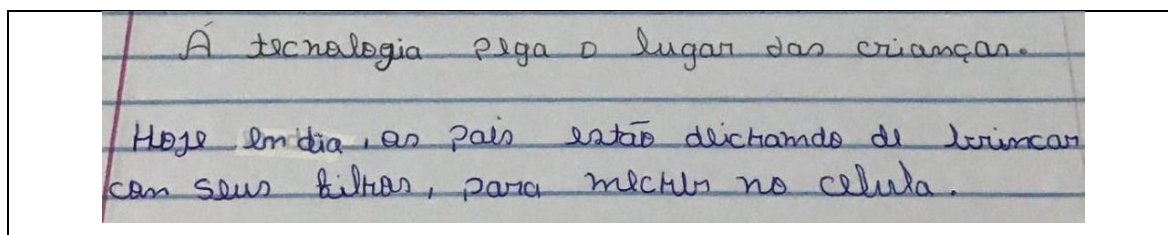 Á tecnologia pega o lugar das crianças.
Hoje em dia, os pais estão deichamdo de brincar
com seus filhos, para mecher no celula.